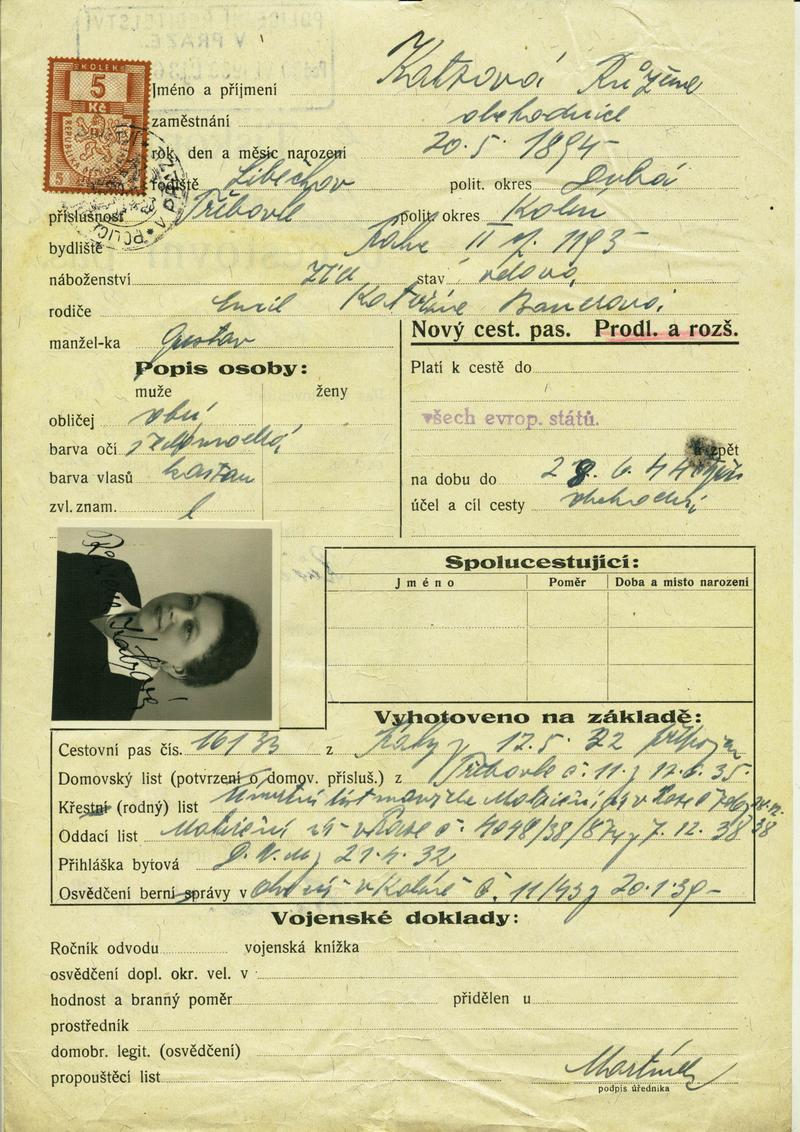 KOLEK
5
Kč
Jméno a příjmení Katzová Růžena
zaměstnání obchodnice
rok, den a měsíc narození 20.5. 1894
rodiště Liběchov polit. okres Dubá
příslušnost Třebovle polit. okres Kolín
bydliště Praha II 1193
náboženství žid stav vdova
rodiče Emil Kateřina
manžel-ka Gustav
Nový cest. pas. Prodl. a rozš.
Popis osoby:
Platí k cestě do
muže ženy
všech evrop. států.
obličej
barva očí
a zpět
barva vlasů kaštan
na dobu do 28.6.44
zvl. znam.
účel a cíl cesty obchodní
Růžena Katzová
Spolucestující:
Jméno Poměr Doba a misto narození
Vyhotoveno na základě:
Cestovní pas čís. z Prahy 17.5.32
Domovský list (potvrzení o domov. přísluš.) z Třebovle č. 11 z 17.6.35.
Křestní (rodný) list Úmrtní list manžela
Oddací list č. 4048/38/ 7.12.38
Přihláška bytová 21.4.32
Osvědčení berní správy v v Kolíně č. 11/43 20.1.39
Vojenské doklady:
Ročník odvodu vojenská knížka
osvědčení dopl. okr. vel. v
hodnost a branný poměr přidělen u
prostředník
domobr. legit. (osvědčení)
propouštěcí list Martínek
podpis úředníka